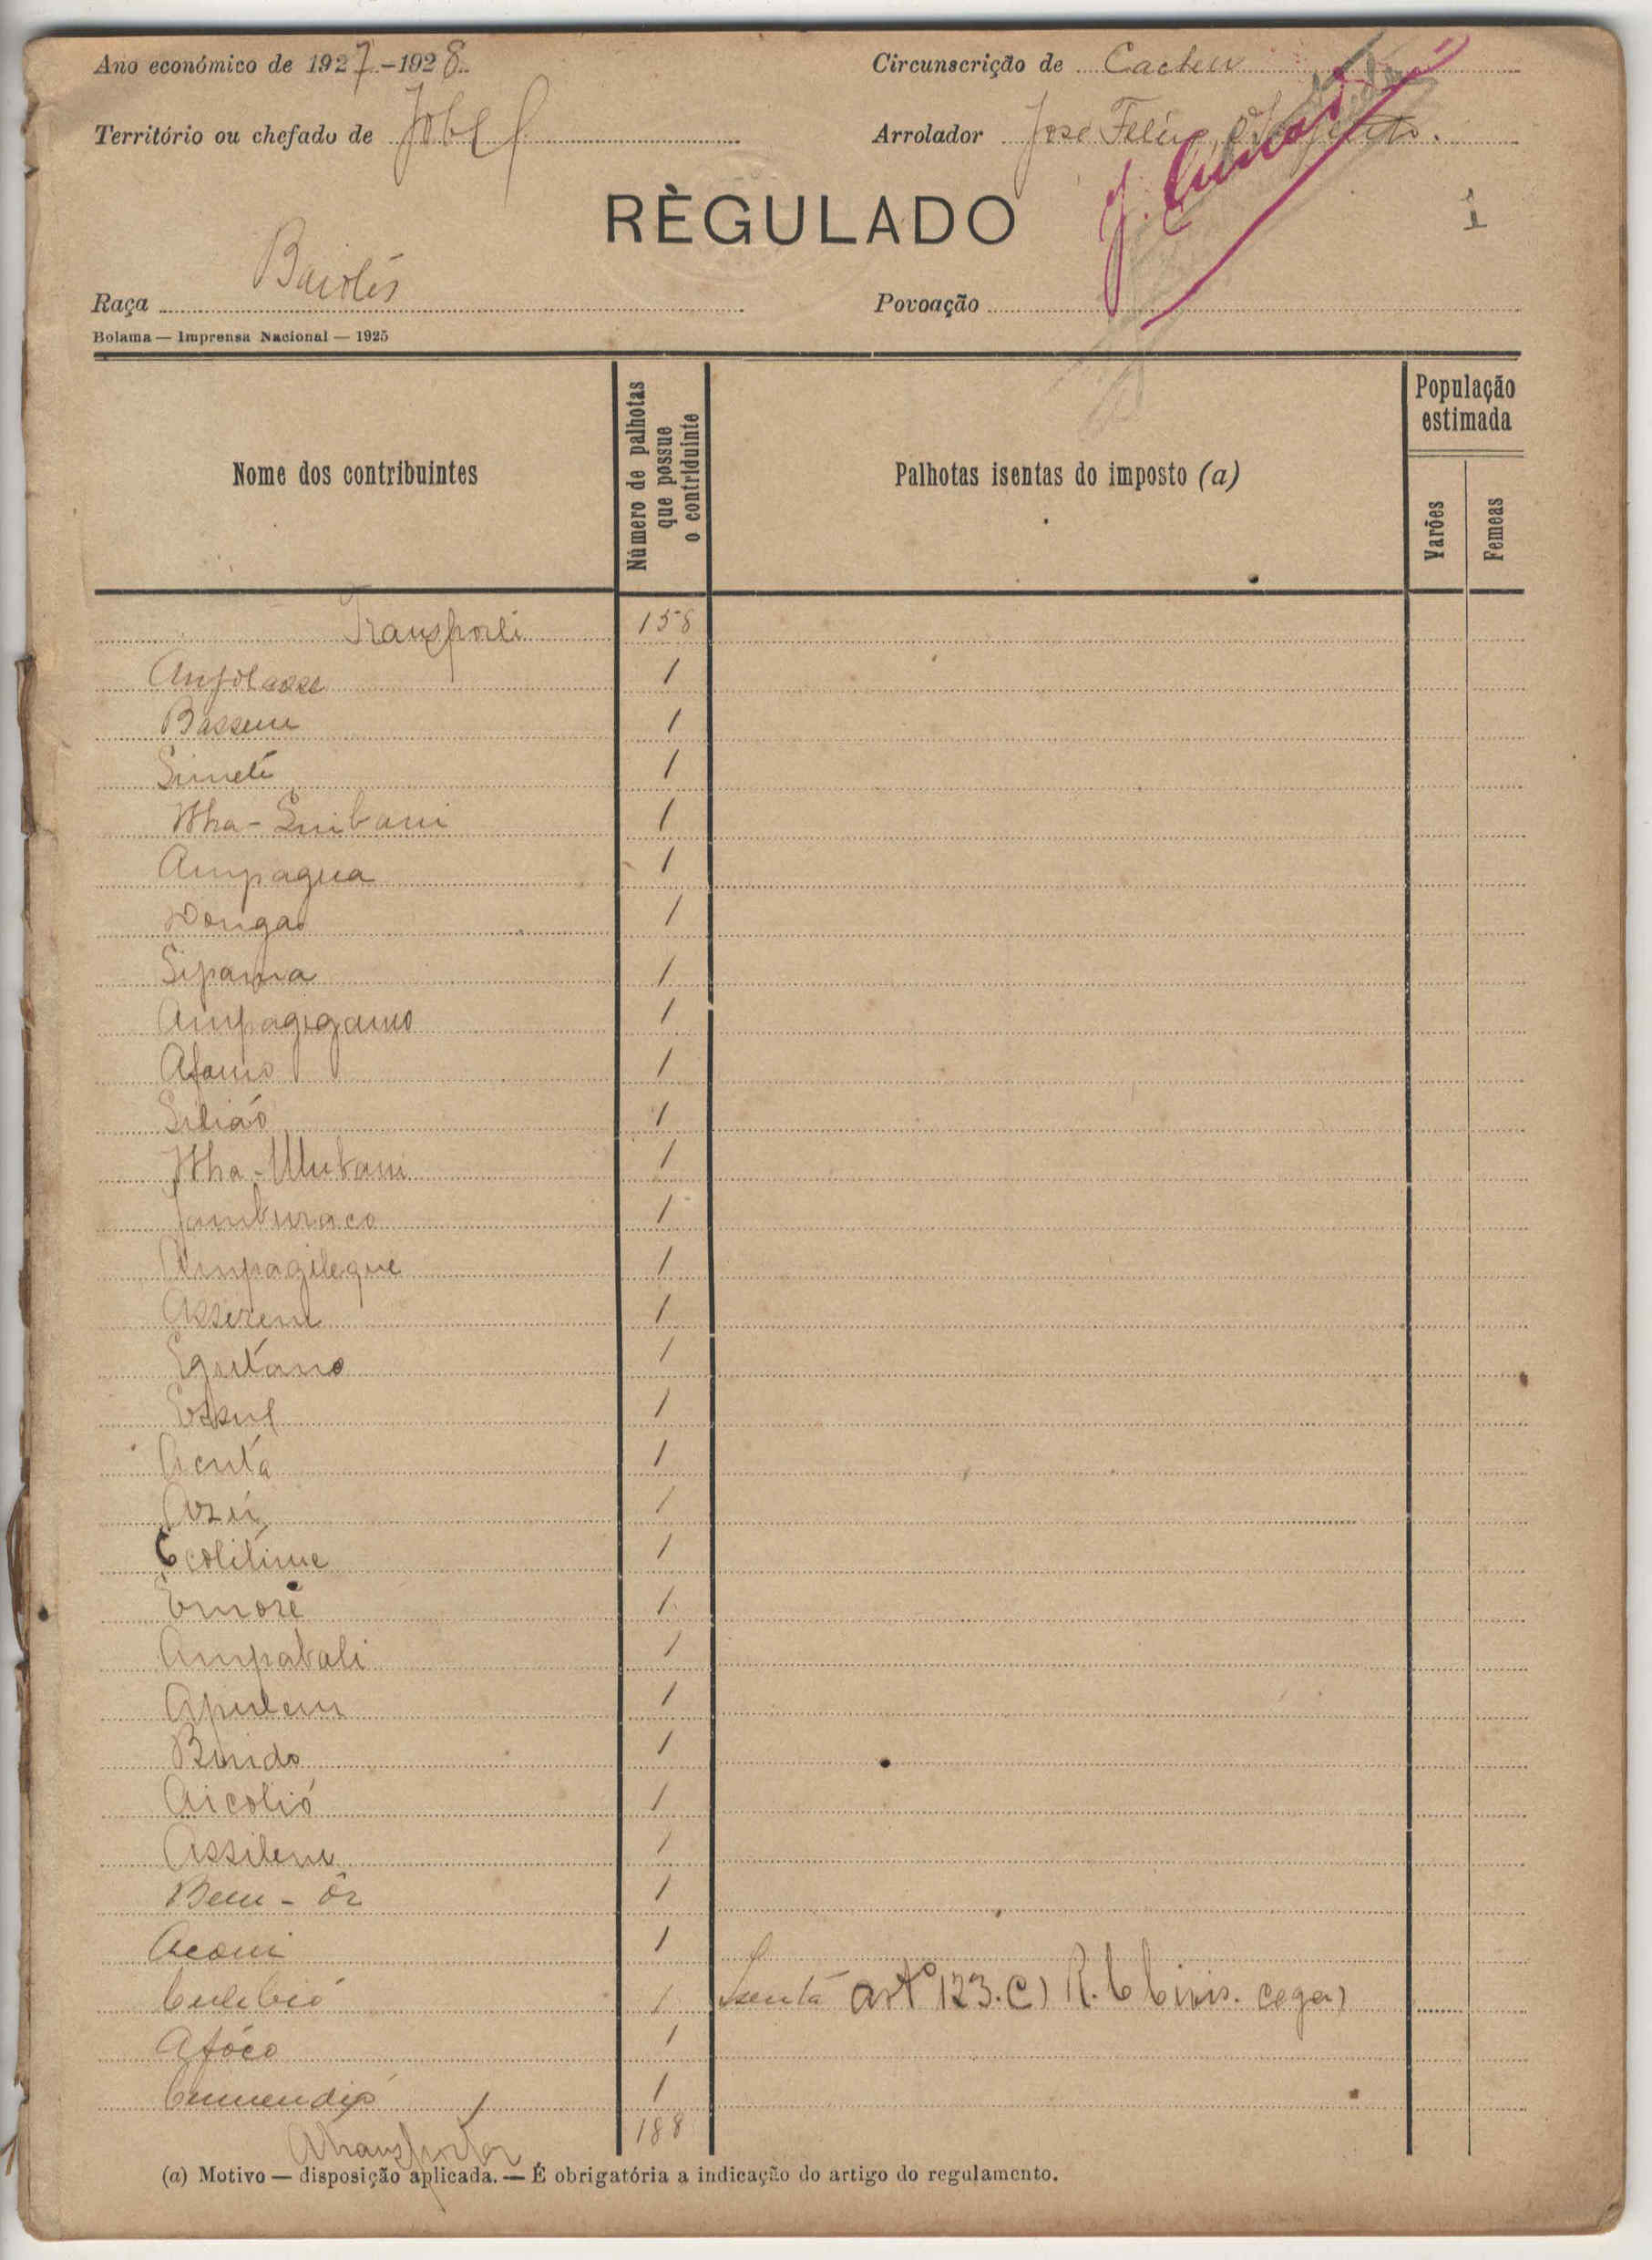 Ano económico de 1927-1928
Circunscrição de Cacheu
Território ou chefado de Jobel
Arrolador José Felix
RÈGULADO
1
Raça Baiotes
Povoação
Bolama — Imprensa Nacional — 1925
Nome dos contribuintes
Número de palhotas que possue o contriduinte
Palhotas isentas do imposto (a)
População estimada
Varões
Femeas
Transporte 158
Anjolasse 1
Bassem 1
Simeti 1
Nha-Snibani 1
Ampagua 1
Dongao 1
Sipama 1
Ampagigamo 1
Afamo 1
Silião 1
Nha-Ulubani 1
Jamburaco 1
Ampagilegue 1
Asserem 1
Egutano 1
Essul 1
Acutá 1
Azei 1
Ecolitime 1
Emoré 1
Ampabali 1
Apulem 1
Bindo 1
Aicolió 1
Assilem 1
Bem-ôr 1
Acomi 1
Culibió 1 Isenta artº 123. C) R. C Civis. cega)
Afóco 1
Cumendió 1
A transportar 188
(a) Motivo — disposição aplicada. — É obrigatória a indicação do artigo do regulamento.